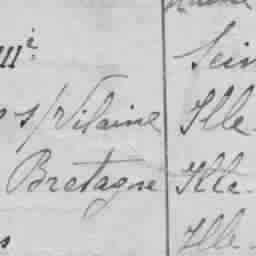 Sein
s/Vilaine Ille
Bretagne Ille.
Ille.